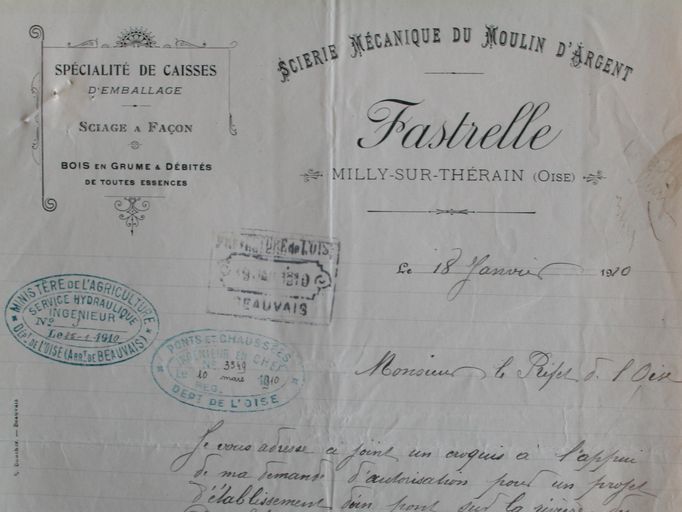 SPÉCIALITÉ DE CAISSES
D'EMBALLAGE
SCIAGE A FAÇON
BOIS EN GRUME & DÉBITÉS
DE TOUTES ESSENCES
SCIERIE MÉCANIQUE DU MOULIN D'ARGENT
Fastrelle
MILLY-SUR-THÉRAIN (OISE)
PRÉFECTURE de L'OISE
19 JAN 1910
BEAUVAIS
Le 18 Janvier 1910
MINISTÈRE DE L'AGRICULTURE
SERVICE HYDRAULIQUE
INGÉNIEUR
No
Le 1910
DépT DE L'OISE (ARRT DE BEAUVAIS)
PONTS ET CHAUSSÉES
INGÉNIEUR EN CHEF
No 3549
Le 10 mars 1910
REG.
DEPT DE L'OISE
Monsieur le Préfet de l'Oise
Je vous adresse ci joint un croquis à l'appui
de ma demande d'autorisation pour un projet
d'établissement d'un pont sur la rivière du
Beauvais